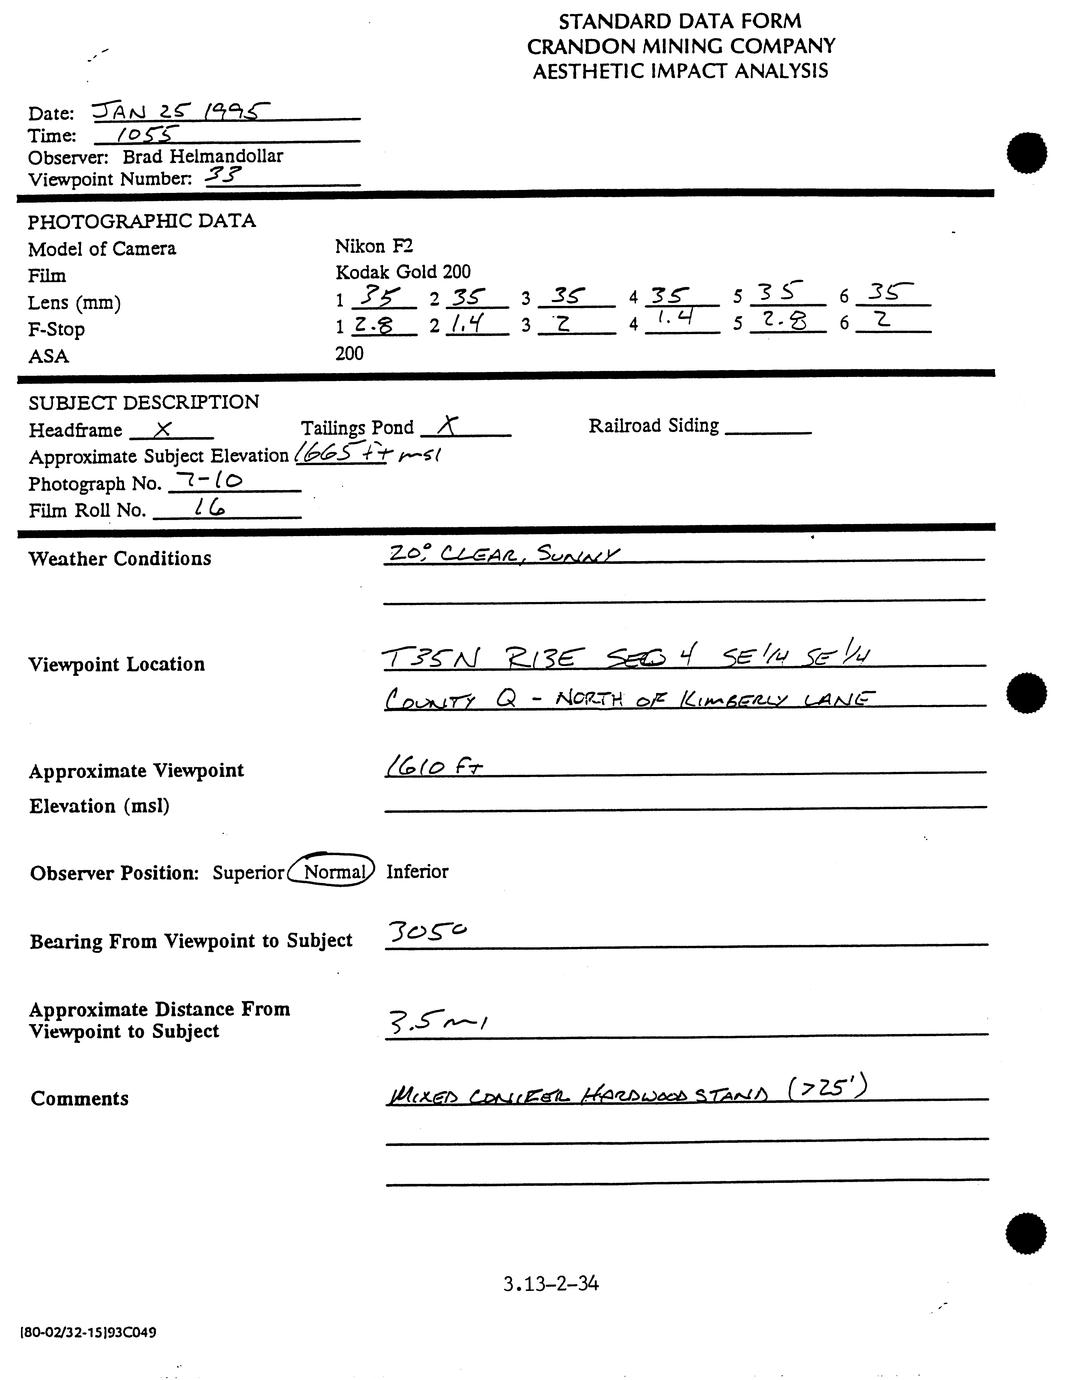 STANDARD DATA FORM
CRANDON MINING COMPANY
AESTHETIC IMPACT ANALYSIS
Date: JAN 25 1995
Time: 1055
Observer: Brad Helmandollar
Viewpoint Number: 33
PHOTOGRAPHIC DATA
Model of Camera Nikon F2
Film Kodak Gold 200
Lens (mm) 1 35 2 35 3 35 4 35 5 35 6 35
F-Stop 1 2.8 2 1.4 3 2 4 1.4 5 2.8 6 2
ASA 200
SUBJECT DESCRIPTION
Headframe X Tailings Pond X Railroad Siding
Approximate Subject Elevation 1665 ft msl
Photograph No. 7-10
Film Roll No. 16
Weather Conditions 20°, CLEAR, SUNNY
Viewpoint Location T35N R13E SEC 4 SE 1/4 SE 1/4
COUNTY Q - NORTH OF KIMBERLY LANE
Approximate Viewpoint 1610 FT
Elevation (msl)
Observer Position: Superior Normal Inferior
Bearing From Viewpoint to Subject 305°
Approximate Distance From
Viewpoint to Subject 3.5 mi
Comments MIXED CONIFER HARDWOOD STAND (>25')
3.13-2-34
[80-02/32-15]93C049